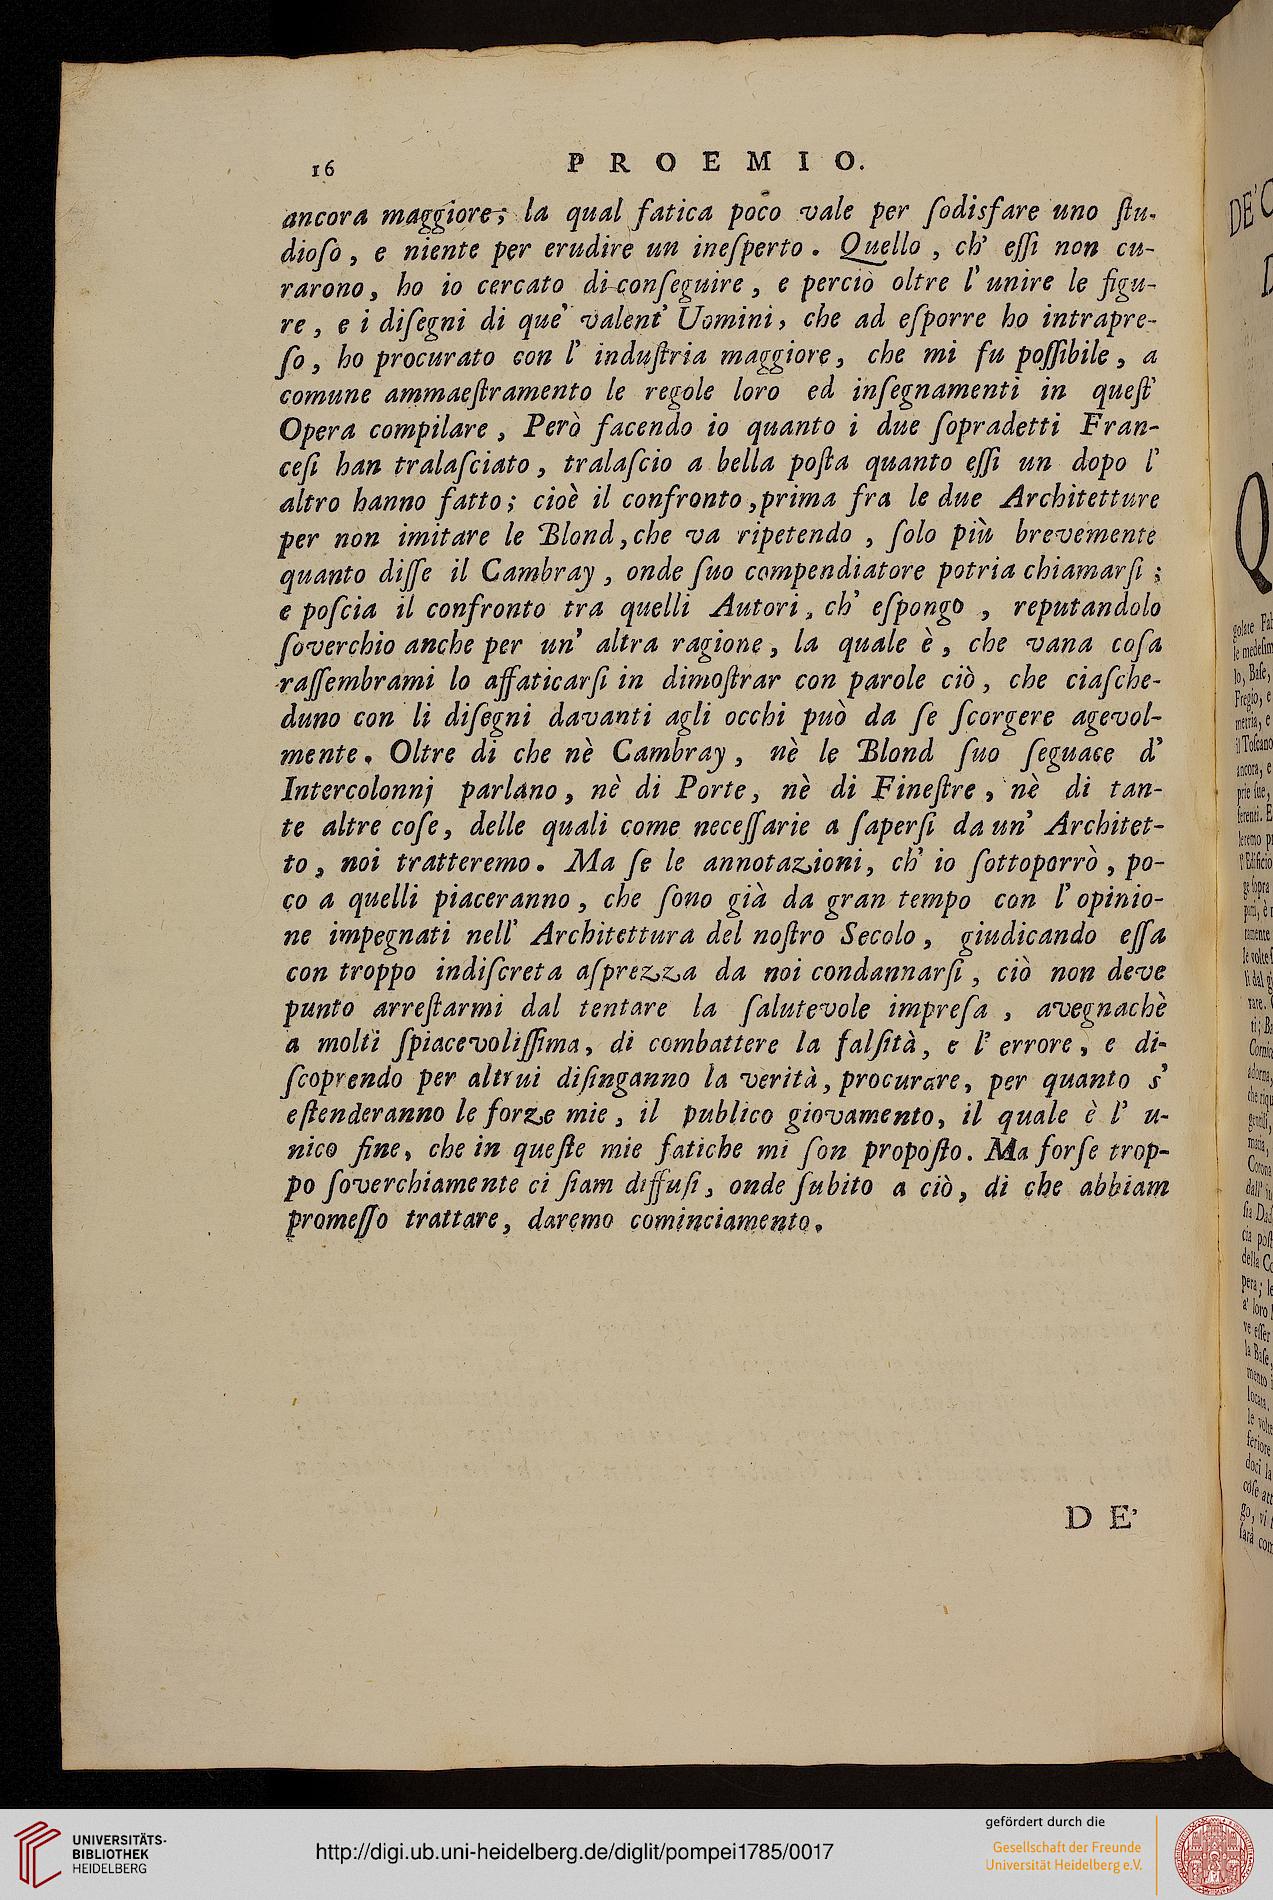 16 PROEMIO.
ancora maggiore; la qual fatica poco vale per ſodisfare uno ſtu-
dioſo, e niente per erudire un ineſperto. Quello, ch' eſſi non cu-
rarono, ho io cercato di conſeguire, e perciò oltre l' unire le figu-
re, e i diſegni di que' valent' Uomini, che ad eſporre ho intrapre-
ſo, ho procurato con l' induſtria maggiore, che mi fu poſſibile, a
comune ammaeſtramento le regole loro ed inſegnamenti in queſt'
Opera compilare, Però facendo io quanto i due ſopradetti Fran-
ceſi han tralaſciato, tralaſcio a bella poſta quanto eſſi un dopo l'
altro hanno fatto; cioè il confronto, prima fra le due Architetture
per non imitare le Blond, che va ripetendo, ſolo più brevemente
quanto diſſe il Cambray, onde ſuo compendiatore potria chiamarſi;
e poſcia il confronto tra quelli Autori, ch' eſpongo, reputandolo
ſoverchio anche per un' altra ragione, la quale è, che vana coſa
raſſembrami lo affaticarſi in dimoſtrar con parole ciò, che ciaſche-
duno con li diſegni davanti agli occhi può da ſe ſcorgere agevol-
mente. Oltre di che nè Cambray, nè le Blond ſuo ſeguace d'
Intercolonnj parlano, nè di Porte, nè di Fineſtre, nè di tan-
te altre coſe, delle quali come neceſſarie a ſaperſi da un' Architet-
to, noi tratteremo. Ma ſe le annotazioni, ch' io ſottoporrò, po-
co a quelli piaceranno, che ſono già da gran tempo con l' opinio-
ne impegnati nell' Architettura del noſtro Secolo, giudicando eſſa
con troppo indiſcreta aſprezza da noi condannarſi, ciò non deve
punto arreſtarmi dal tentare la ſalutevole impreſa, avegnachè
a molti ſpiacevoliſſima, di combattere la falſità, e l' errore, e di-
ſcoprendo per altrui diſinganno la verità, procurare, per quanto s'
eſtenderanno le forze mie, il publico giovamento, il quale è l' u-
nico fine, che in queſte mie fatiche mi ſon propoſto. Ma forſe trop-
po ſoverchiamente ci ſiam diffuſi, onde ſubito a ciò, di che abbiam
promeſſo trattare, daremo cominciamento.
DE'
UNIVERSITÄTS-
BIBLIOTHEK
HEIDELBERG
http://digi.ub.uni-heidelberg.de/diglit/pompei1785/0017
gefördert durch die
Gesellschaft der Freunde
Universität Heidelberg e.V.